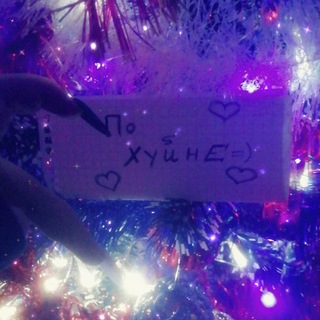 По
хуйнЕ=)